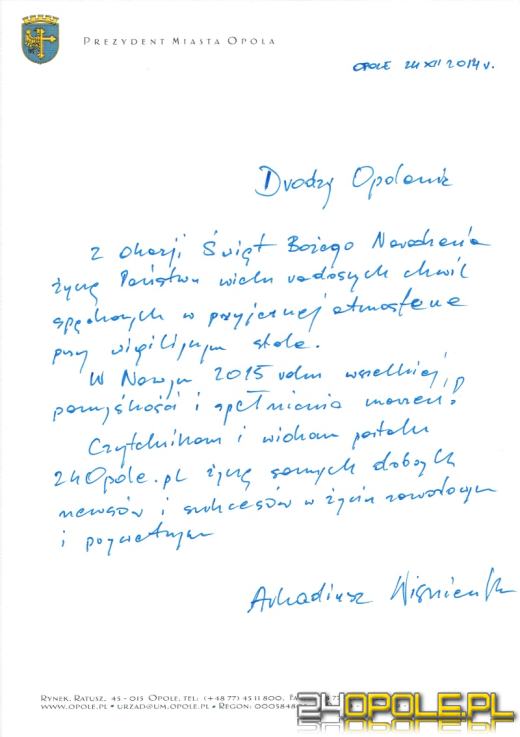 PREZYDENT MIASTA OPOLA
OPOLE 24 XII 2014 r.
Drodzy Opolanie
Z okazji Świąt Bożego Narodzenia
życzę Państwu wielu radosnych chwil
spędzonych w przyjaznej atmosferze
przy wigilijnym stole.
W Nowym 2015 roku wszelkiej
pomyślności i spełnienia marzeń!
Czytelnikom i widzom portalu
24Opole.pl życzę samych dobrych
newsów i sukcesów w życiu zawodowym
i prywatnym
Arkadiusz Wiśniewski
RYNEK, RATUSZ, 45 - 015 OPOLE, TEL: (+48 77) 45 11 800,
WWW.OPOLE.PL • URZAD@UM.OPOLE.PL • REGON: 0005848
24OPOLE.PL